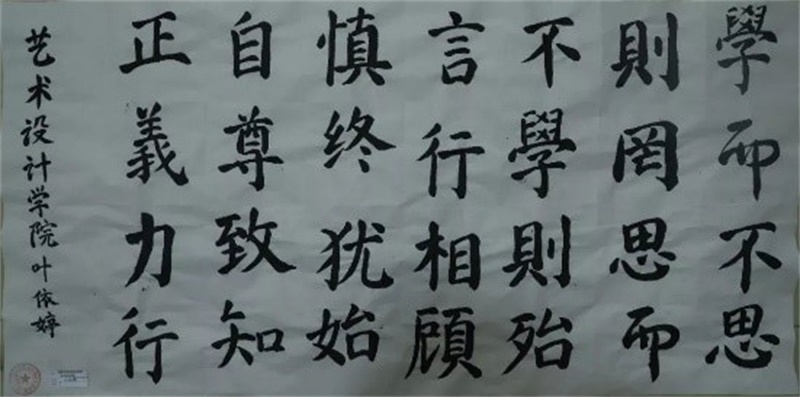 學而不思
則罔思而
不學則殆
言行相顧
慎终犹始
自尊致知
正義力行
艺术设计学院叶依婷